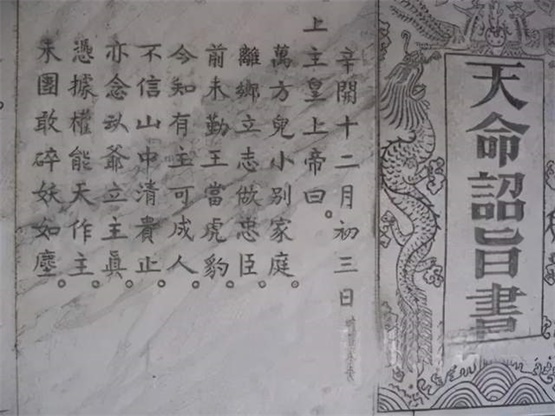 天命詔旨書
辛開十二月初三日
上主皇上帝曰。
萬方兒小別家庭。
離鄉立志做忠臣。
前未勤王當虎豹。
今知有主可成人。
不信山中清貴止。
亦念爺立主眞。
憑據權能天作主。
未團敢碎妖如塵。